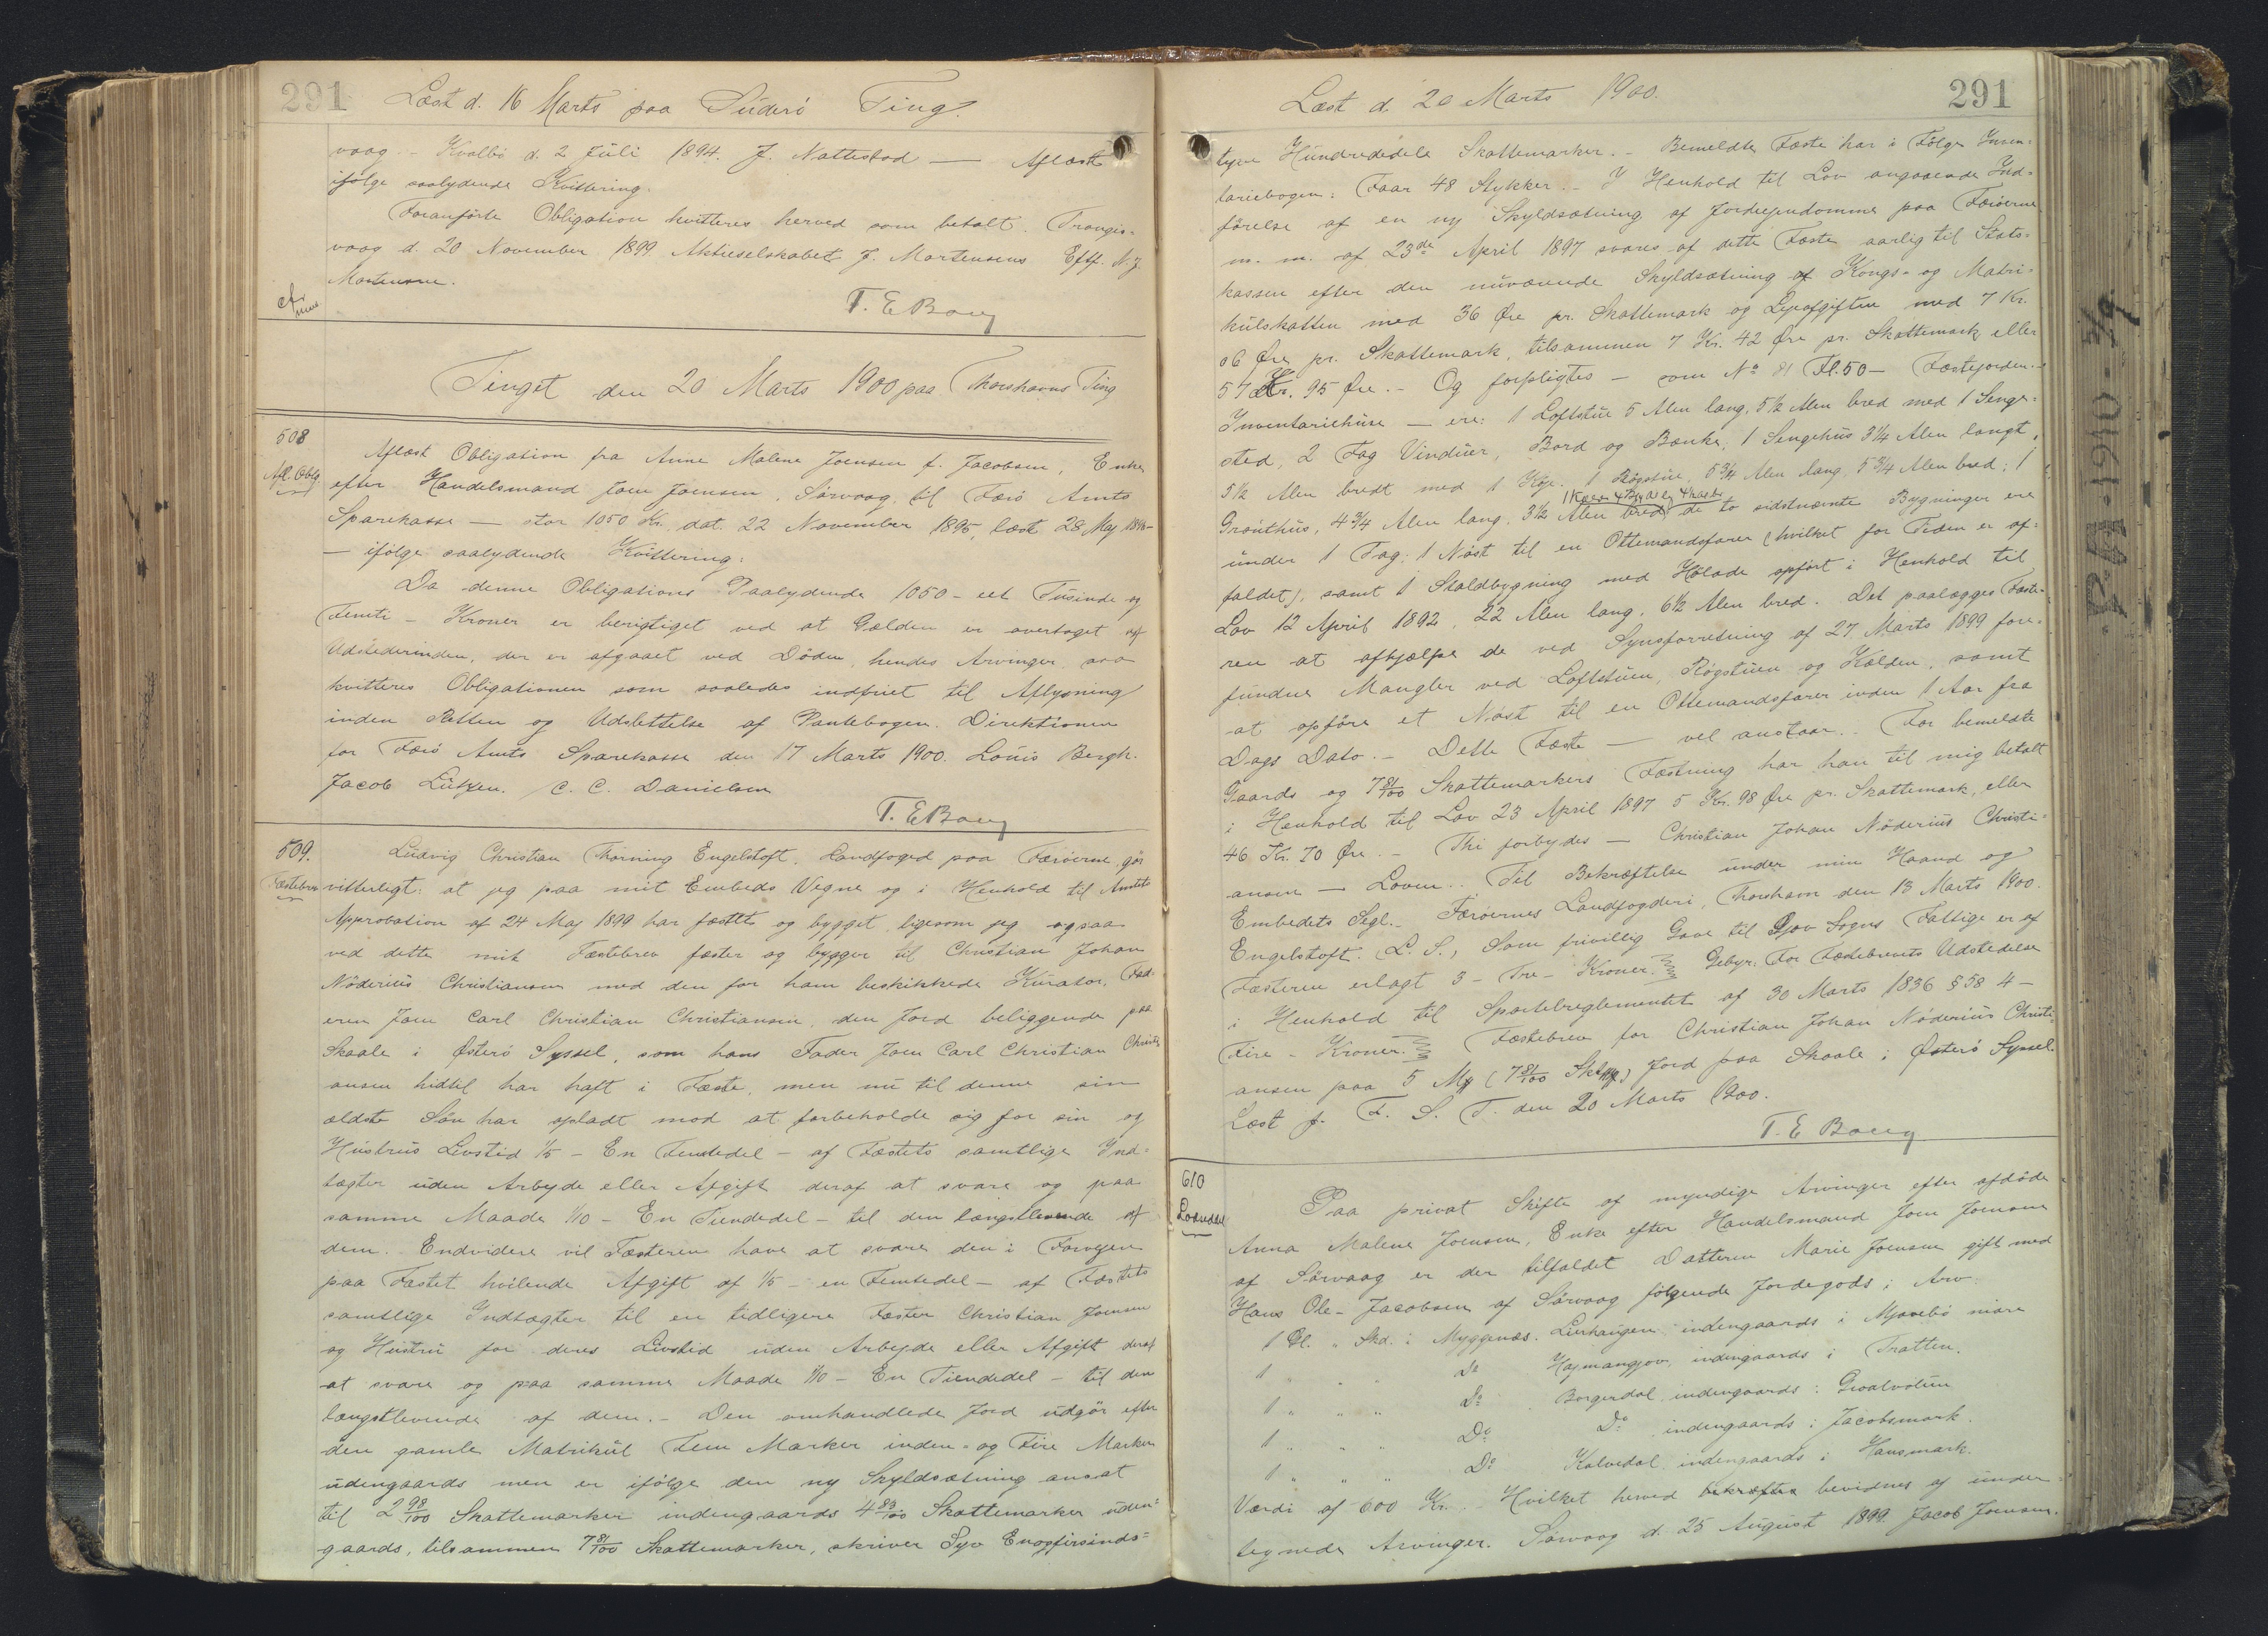 291 Læst d. 16 Marts paa Suderö Ting.
vaag - Kvalbö d. 2 Juli 1894. J. Nattestad — Aflæst
ifølge saalydende Kvittering.
Foranførte Obligation kvitteres herved som betalt. Trangis-
vaag d. 20 November 1899 Aktieselskabet J. Mortensens Eftf. N. J.
Mortensen.
T. E Bærg
Tinget den 20 Marts 1900 paa Thorshavns Ting
508
Afl. Oblg.
Aflæst Obligation fra Anne Malene Joensen f. Jacobsen, Enke
efter Handelsmand Joen Joensen, Sörvaag, til Færö Amts
Sparekasse — stor 1050 Kr. dat. 22 November 1895, læst 28 Maj 1896 -
— ifølge saalydende Kvittering:
Da denne Obligations Paalydende 1050 - eet Tusinde og
Femti - Kroner er berigtiget ved at Gælden er overtaget af
Udstederinden, der er afgaaet ved Döden, hendes Arvinger, saa
kvitteres Obligationen som saaledes indfriet til Aflysning
inden Retten og Udslettelse af Pantebogen. Direktionen
for Færö Amts Sparekasse den 17 Marts 1900. Louis Bergh.
Jacob Lützen. C. C. Danielsen
T. E Bærg
509.
Fæstebrev
Ludvig Christian Thorning Engelstoft, Landfoged paa Færöerne, gör
vitterligt: at jeg paa mit Embeds Vegne og i Henhold til Amtets
Approbation af 24 Maj 1899 har fæstet og bygget, ligesom jeg ogsaa
ved dette mit Fæstebrev fæster og bygger til Christian Johan
Nöderius Christiansen med den for ham beskikkede Kurator, Fad-
eren Joen Carl Christian Christiansen, den Jord beliggende paa
Skaale i Österö Syssel, som hans Fader Joen Carl Christian Christi-
ansen hidtil har haft i Fæste, men nu til denne sin
ældste Sön har opladt mod at forbeholde sig for sin og
Hustrus Levetid 1/5 - En Femtedel - af Fæstets samtlige Ind-
tægter uden Arbejde eller Afgift deraf at svare og paa
samme Maade 1/10 - En Tiendedel - til den længstlevende af
dem. Endvidere vil Fæsteren have at svare den i Forvejen
paa Fæstet hvilende Afgift af 1/5 - en Femtedel - af Fæstets
samtlige Indtægter til en tidligere Fæster Christian Joensen
og Hustru for deres Levetid uden Arbejde eller Afgift deraf
at svare og paa samme Maade 1/10 - En Tiendedel - til den
længstlevende af dem. - Den omhandlede Jord udgör efter
den gamle Matrikul Fem Marker inden- og Fire Marker
udengaards men er ifølge den ny Skyldsætning ansat
til 2 98/100 Skattemarker indengaards 4 83/100 Skattemarker uden-
gaards, tilsammen 7 81/100 Skattemarker, skriver Syv Enogfirsinds-
Læst d. 20 Marts 1900. 291
tyve Hundrededele Skattemarker. - Bemeldte Fæste har i Følge Inven-
tariebogen: Faar 48 Stykker. - I Henhold til Lov angaaende Ind-
førelse af en ny Skyldsætning af Jordejendomme paa Færöerne
m. m. af 23de April 1897 svares af dette Fæste aarlig til Stats-
kassen efter den nuværende Skyldsætning af Kongs- og Matri-
kulskatten med 36 Øre pr. Skattemark og Lejeafgiften med 7 Kr.
06 Øre pr. Skattemark, tilsammen 7 Kr. 42 Øre pr. Skattemark eller
57 Kr. 95 Øre. - Og forpligtes - som No 81 Fl. 50 - Fæstejorden. -
Inventariehuse — ere: 1 Loftstue 5 Alen lang, 5 1/2 Alen bred med 1 Senge-
sted, 2 Fag Vinduer, Bord og Bænke; 1 Sengehus 3 1/4 Alen langt,
5 1/2 Alen bredt med 1 Köje. 1 Rögstue, 5 3/4 Alen lang, 5 3/4 Alen bred; 1
Gronthus, 4 3/4 Alen lang, 3 1/2 Alen bred de to sidstnævnte Bygninger ere
under 1 Tag; 1 Nöst til en Ottemandsfarer (hvilket for Tiden er af-
faldet), samt 1 Staldbygning med Hölade opført i Henhold til
Lov 12 April 1892, 22 Alen lang, 6 1/2 Alen bred. Det paalægges Fæste-
ren at afhjælpe de ved Synsforretning af 27 Marts 1899 fore-
fundne Mangler ved Loftstuen, Rögstuen og Kælden, samt
at opføre et Nöst til en Ottemandsfarer inden 1 Aar fra
Dags Dato. - Dette Fæste — vel anstaar. - For bemeldte
Gaards og 7 81/100 Skattemarkers Fæstning har han til mig betalt
i Henhold til Lov 23 April 1897 5 Kr. 98 Øre pr. Skattemark, eller
46 Kr. 70 Øre. - Thi forbydes — Christian Johan Nöderius Christi-
ansen — Loven. . Til Bekræftelse under min Haand og
Embedets Segl. - Færöernes Landfogderi, Thorshavn den 13 Marts 1900.
Engelstoft. L. S., Som frivillig Gave til Gjov Sogns Fattige er af
Fæsteren erlagt 3 - Tre - Kroner. Gebyr: For Fæstebrevets Udstedelse
i Henhold til Sportelreglementet af 30 Marts 1836 § 58 4 -
Fire - Kroner. Fæstebrev for Christian Johan Nöderius Christi-
ansen paa 5 Mk (7 81/100 Sktmk) Jord paa Skaale i Österö Syssel.
Læst f. F. S. T. den 20 Marts 1900.
T. E Bærg
610
Paa privat Skifte af myndige Arvinger efter afdöde
Anna Malene Joensen, Enke efter Handelsmand Joen Joensen
af Sörvaag er der tilfaldet Datteren Marie Joensen gift med
Hans Ole - Jacobsen af Sörvaag følgende Jordegods i Arv:
1 Gl. " Skd. i Myggenæs. Lirhaugen indengaards i Mjavebö niare
1 " " " Do Hajmangjov, indengaards i Tratten.
1 " " " Do Borgerdal indengaards i Groalvotun
1 " " " Do Do indengaards i Jacobsmark.
1 " " " Do Kalvedal indengaards i Hansmark.
Værdi af 600 Kr. - Hvilket herved bekræftes bevidnes af under-
tegnede Arvinger. Sörvaag d. 25 August 1899. Jacob Joensen.